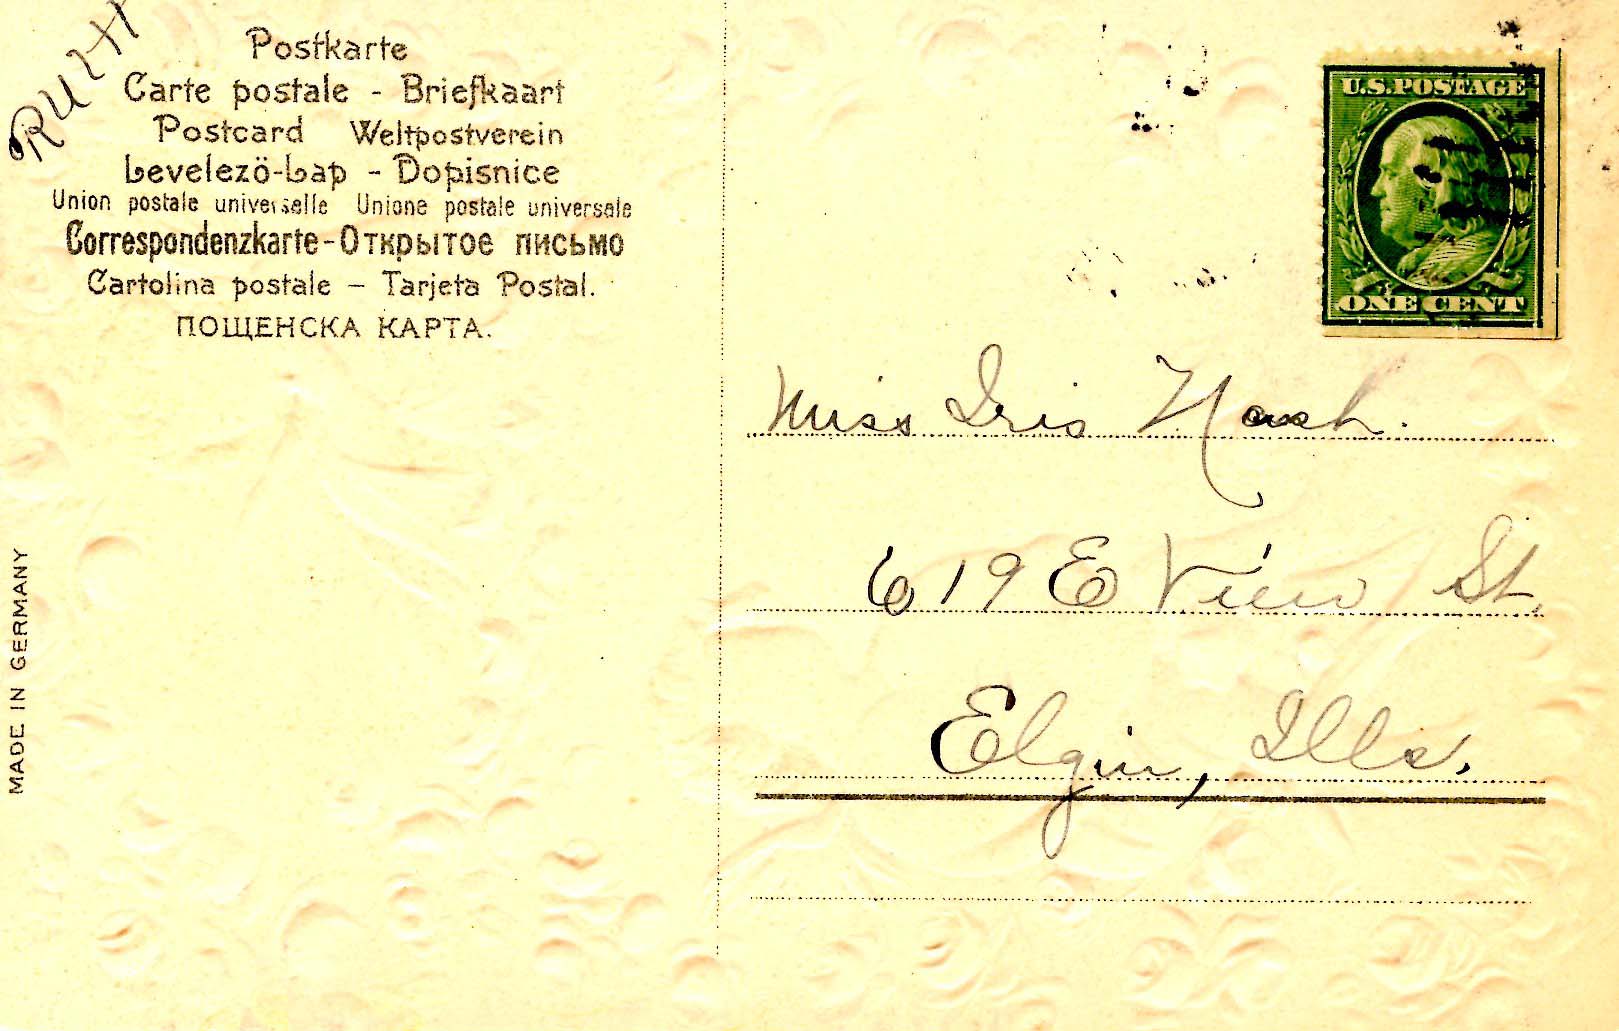 RU2H
Postkarte
Carte postale - Briefkaart
Postcard Weltpostverein
Levelezö-Lap - Dopisnice
Union postale universelle Unione postale universale
Correspondenzkarte-Открытое письмо
Cartolina postale – Tarjeta Postal.
ПОЩЕНСКА КАРТА.
MADE IN GERMANY
U.S. POSTAGE
ONE CENT
Miss Iris Nash.
619 E View St.
Elgin, Ills.